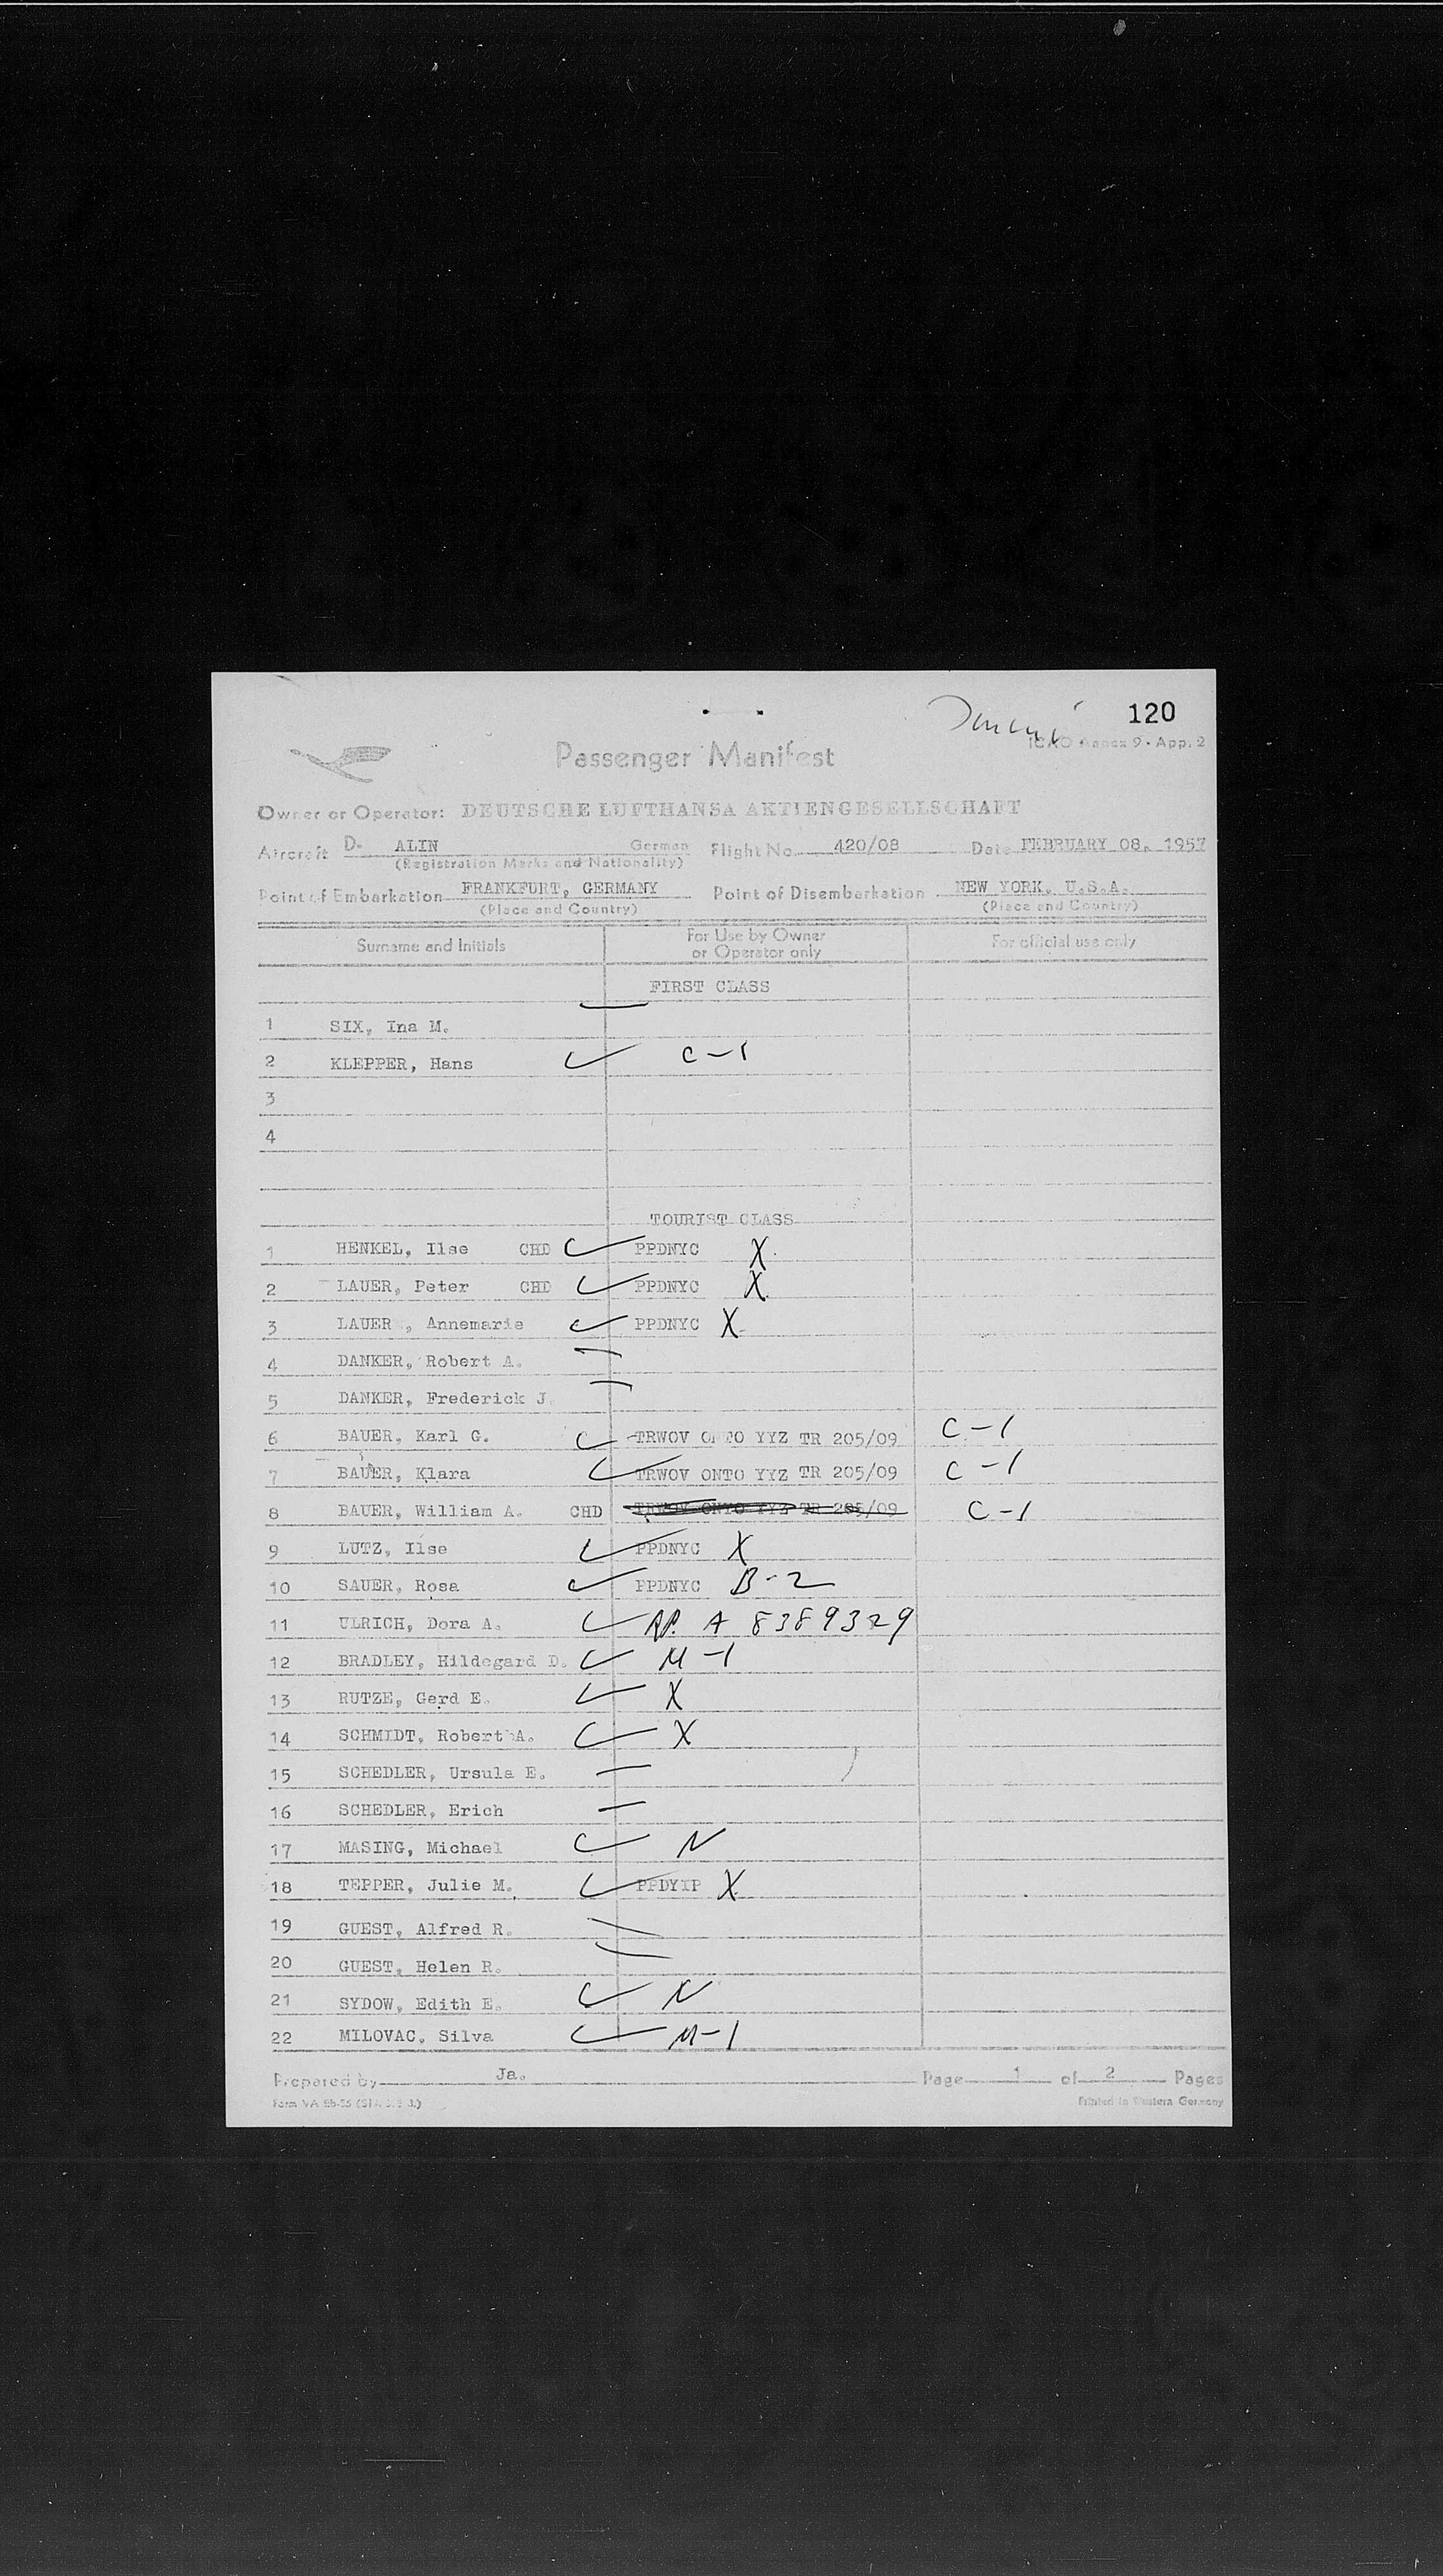 120
ICAO Annex 9 - App. 2
Passenger Manifest
Owner or Operator: DEUTSCHE LUFTHANSA AKTIENGESELLSCHAFT
Aircraft D- ALIN German Flight No. 420/08 Date FEBRUARY 08, 1957
(Registration Marks and Nationality)
Point of Embarkation FRANKFURT, GERMANY Point of Disembarkation NEW YORK, U.S.A.
(Place and Country) (Place and Country)
Surname and Initials For Use by Owner or Operator only For official use only
FIRST CLASS
1 SIX, Ina M.
2 KLEPPER, Hans ✓ C-1
3
4
TOURIST CLASS
1 HENKEL, Ilse CHD ✓ PPDNYC X
2 LAUER, Peter CHD ✓ PPDNYC X
3 LAUER , Annemarie ✓ PPDNYC X
4 DANKER, Robert A. —
5 DANKER, Frederick J. —
6 BAUER, Karl G. ✓ TRWOV ONTO YYZ TR 205/09 C-1
7 BAUER, Klara ✓ TRWOV ONTO YYZ TR 205/09 C-1
8 BAUER, William A. CHD TRWOV ONTO YYZ TR 205/09 C-1
9 LUTZ, Ilse ✓ PPDNYC X
10 SAUER, Rosa ✓ PPDNYC B-2
11 ULRICH, Dora A. ✓ A 8389329
12 BRADLEY, Hildegard D. ✓ M-1
13 RUTZE, Gerd E. ✓ X
14 SCHMIDT, Robert A. ✓ X
15 SCHEDLER, Ursula E. —
16 SCHEDLER, Erich —
17 MASING, Michael ✓ N
18 TEPPER, Julie M. ✓ X
19 GUEST, Alfred R. —
20 GUEST, Helen R. —
21 SYDOW, Edith E. ✓ N
22 MILOVAC, Silva ✓ M-1
Prepared by Ja. Page 1 of 2 Pages
Printed in Western Germany